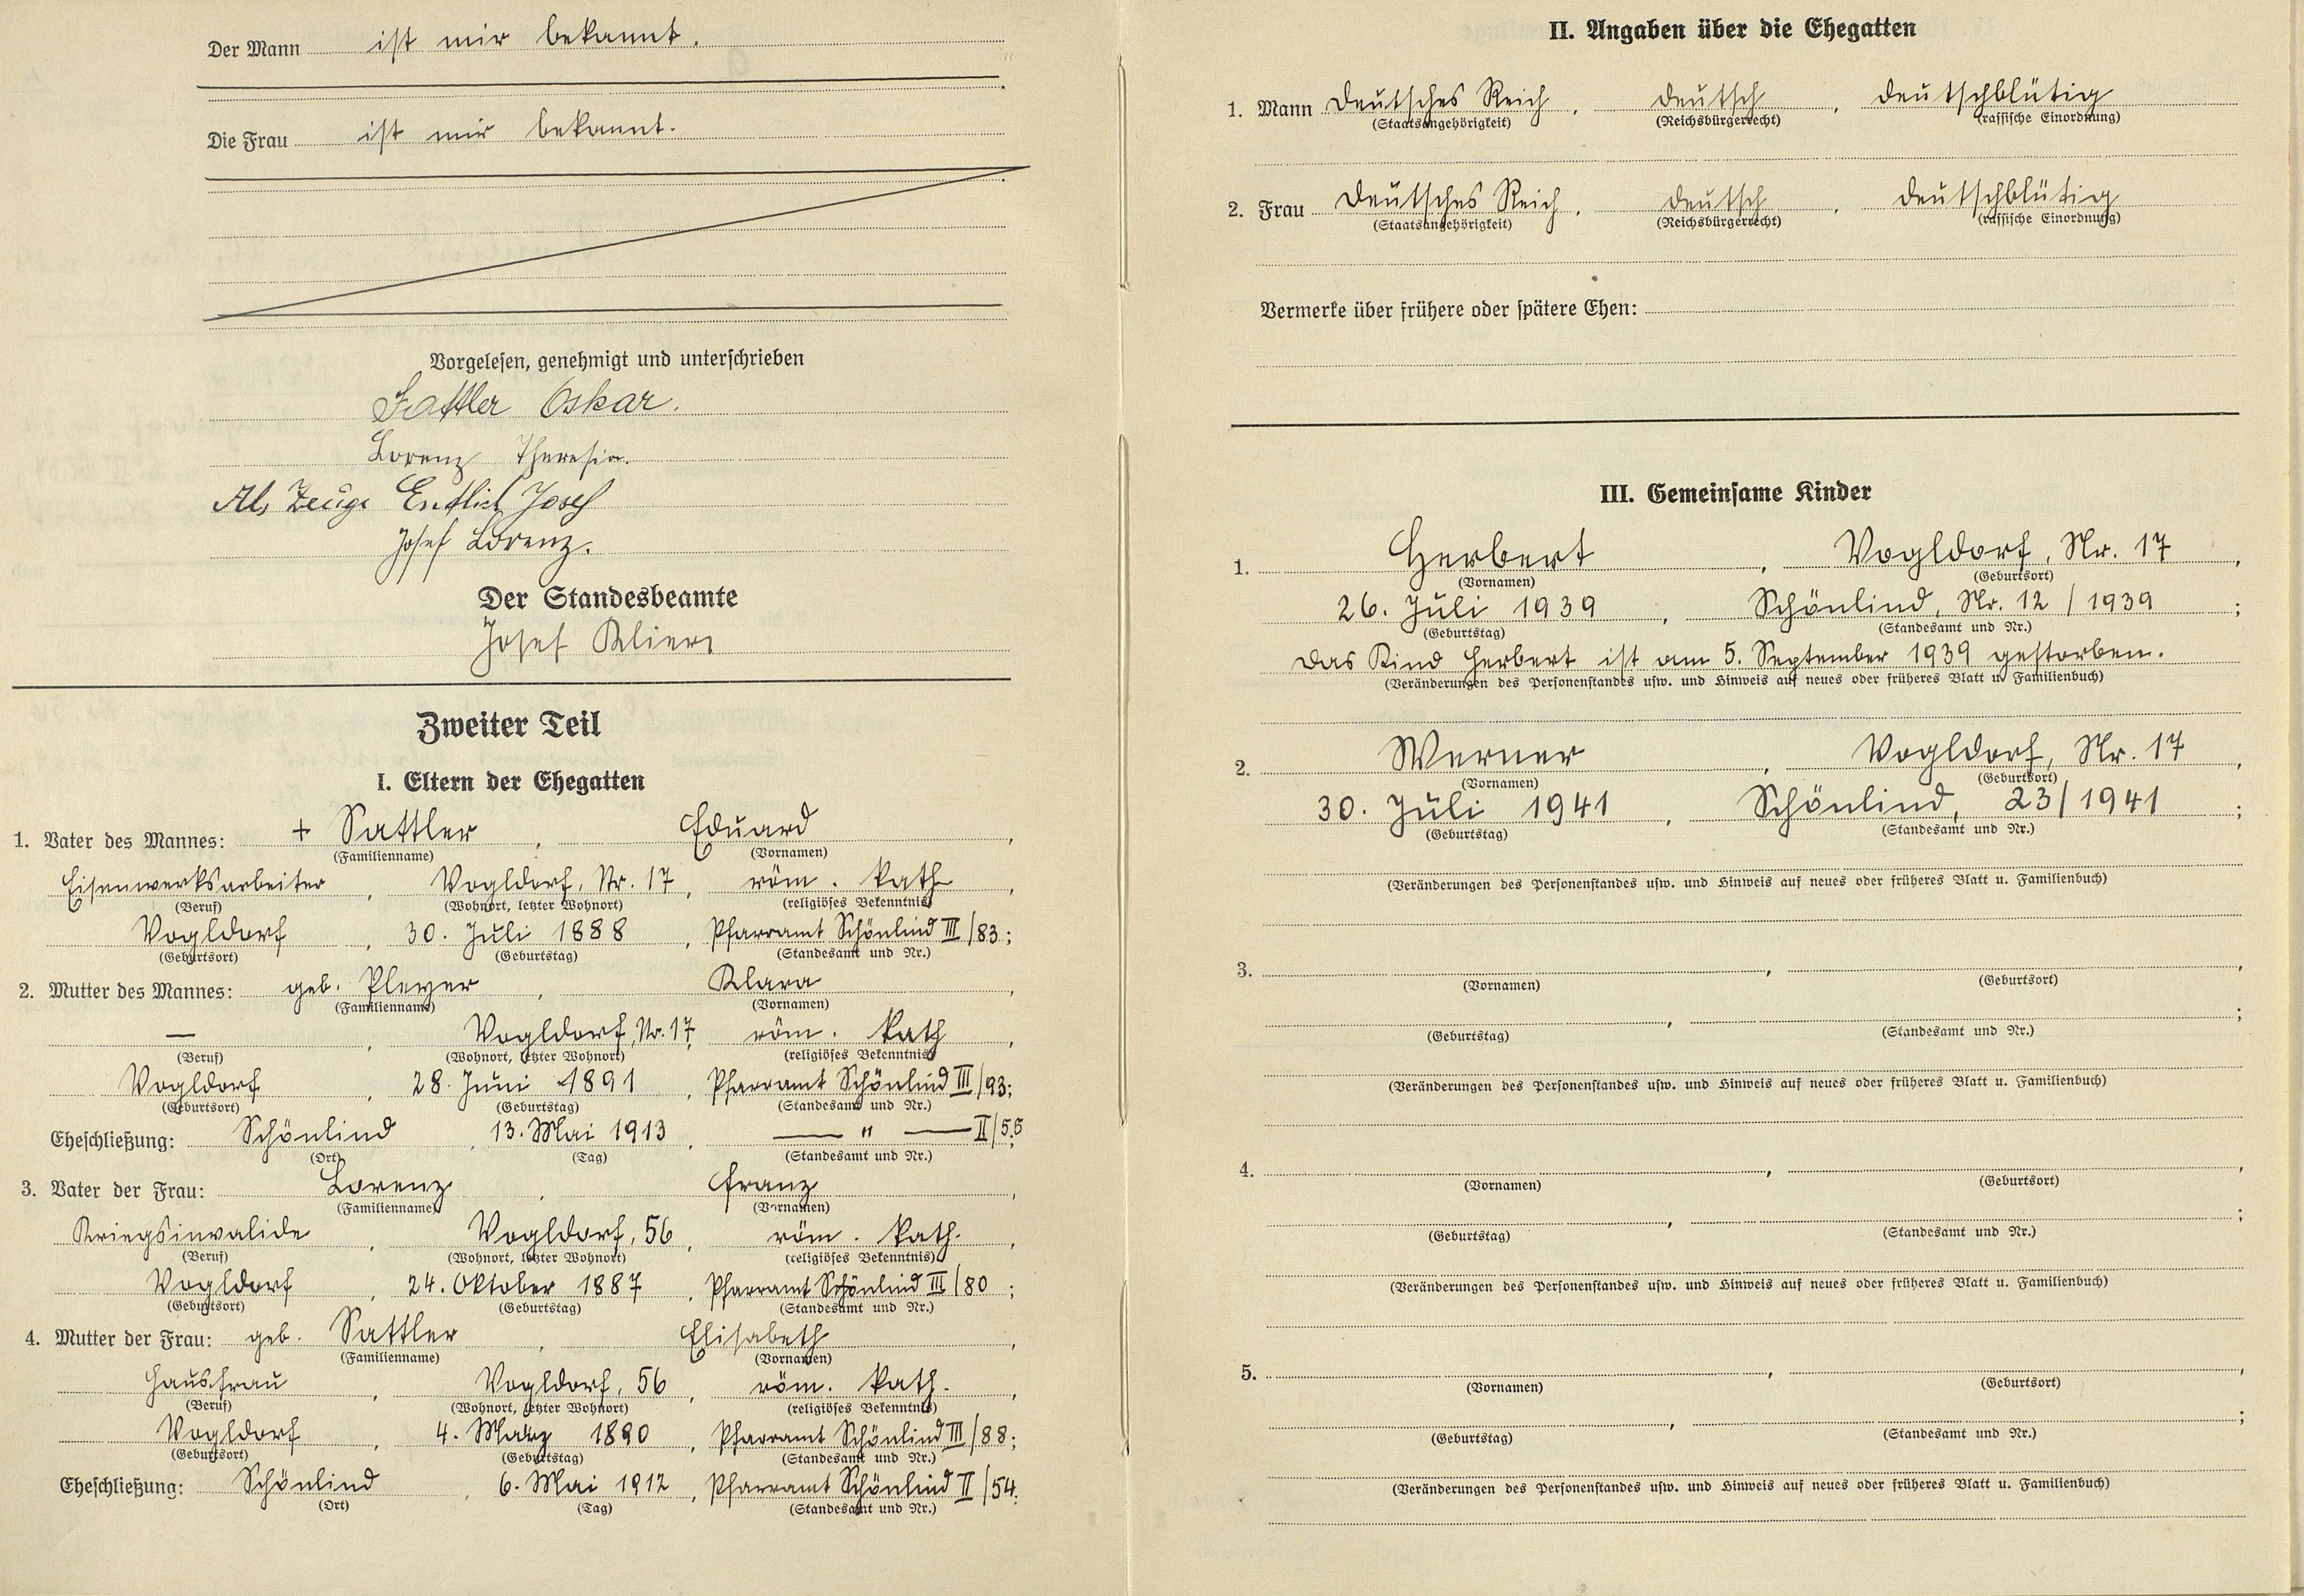 Der Mann ist mir bekannt.
Die Frau ist mir bekannt.
Vorgelesen, genehmigt und unterschrieben
Sattler Oskar.
Lorenz Theresia.
Als Zeuge Entlich Josef
Josef Lorenz.
Der Standesbeamte
Josef Klier
Zweiter Teil
I. Eltern der Ehegatten
1. Vater des Mannes: + Sattler, Eduard,
(Familienname) (Vornamen)
Eisenwerksarbeiter, Vogldorf, Nr. 17, röm. kath,
(Beruf) (Wohnort, letzter Wohnort) (religiöses Bekenntnis)
Vogldorf, 30. Juli 1888, Pfarramt Schönlind III/83;
(Geburtsort) (Geburtstag) (Standesamt und Nr.)
2. Mutter des Mannes: geb. Pleyer, Klara,
(Familienname) (Vornamen)
—, Vogldorf, Nr. 17, röm. kath,
(Beruf) (Wohnort, letzter Wohnort) (religiöses Bekenntnis)
Vogldorf, 28. Juni 1891, Pfarramt Schönlind III/93;
(Geburtsort) (Geburtstag) (Standesamt und Nr.)
Eheschließung: Schönlind, 13. Mai 1913, — " — II/55;
(Ort) (Tag) (Standesamt und Nr.)
3. Vater der Frau: Lorenz, Franz,
(Familienname) (Vornamen)
Kriegsinvalide, Vogldorf, 56, röm. kath.,
(Beruf) (Wohnort, letzter Wohnort) (religiöses Bekenntnis)
Vogldorf, 24. Oktober 1887, Pfarramt Schönlind III/80;
(Geburtsort) (Geburtstag) (Standesamt und Nr.)
4. Mutter der Frau: geb. Sattler, Elisabeth,
(Familienname) (Vornamen)
Hausfrau, Vogldorf, 56, röm. kath.,
(Beruf) (Wohnort, letzter Wohnort) (religiöses Bekenntnis)
Vogldorf, 4. März 1890, Pfarramt Schönlind III/88;
(Geburtsort) (Geburtstag) (Standesamt und Nr.)
Eheschließung: Schönlind, 6. Mai 1912, Pfarramt Schönlind II/54.
(Ort) (Tag) (Standesamt und Nr.)
II. Angaben über die Ehegatten
1. Mann Deutsches Reich, deutsch, deutschblütig
(Staatsangehörigkeit) (Reichsbürgerrecht) (rassische Einordnung)
2. Frau Deutsches Reich, deutsch, deutschblütig
(Staatsangehörigkeit) (Reichsbürgerrecht) (rassische Einordnung)
Vermerke über frühere oder spätere Ehen:
III. Gemeinsame Kinder
1. Herbert, Vogldorf, Nr. 17,
(Vornamen) (Geburtsort)
26. Juli 1939, Schönlind, Nr. 12/1939;
(Geburtstag) (Standesamt und Nr.)
Das Kind Herbert ist am 5. September 1939 gestorben.
(Veränderungen des Personenstandes usw. und Hinweis auf neues oder früheres Blatt u. Familienbuch)
2. Werner, Vogldorf, Nr. 17,
(Vornamen) (Geburtsort)
30. Juli 1941, Schönlind, 23/1941;
(Geburtstag) (Standesamt und Nr.)
(Veränderungen des Personenstandes usw. und Hinweis auf neues oder früheres Blatt u. Familienbuch)
3. , ,
(Vornamen) (Geburtsort)
, ;
(Geburtstag) (Standesamt und Nr.)
(Veränderungen des Personenstandes usw. und Hinweis auf neues oder früheres Blatt u. Familienbuch)
4. , ,
(Vornamen) (Geburtsort)
, ;
(Geburtstag) (Standesamt und Nr.)
(Veränderungen des Personenstandes usw. und Hinweis auf neues oder früheres Blatt u. Familienbuch)
5. , ,
(Vornamen) (Geburtsort)
, ;
(Geburtstag) (Standesamt und Nr.)
(Veränderungen des Personenstandes usw. und Hinweis auf neues oder früheres Blatt u. Familienbuch)